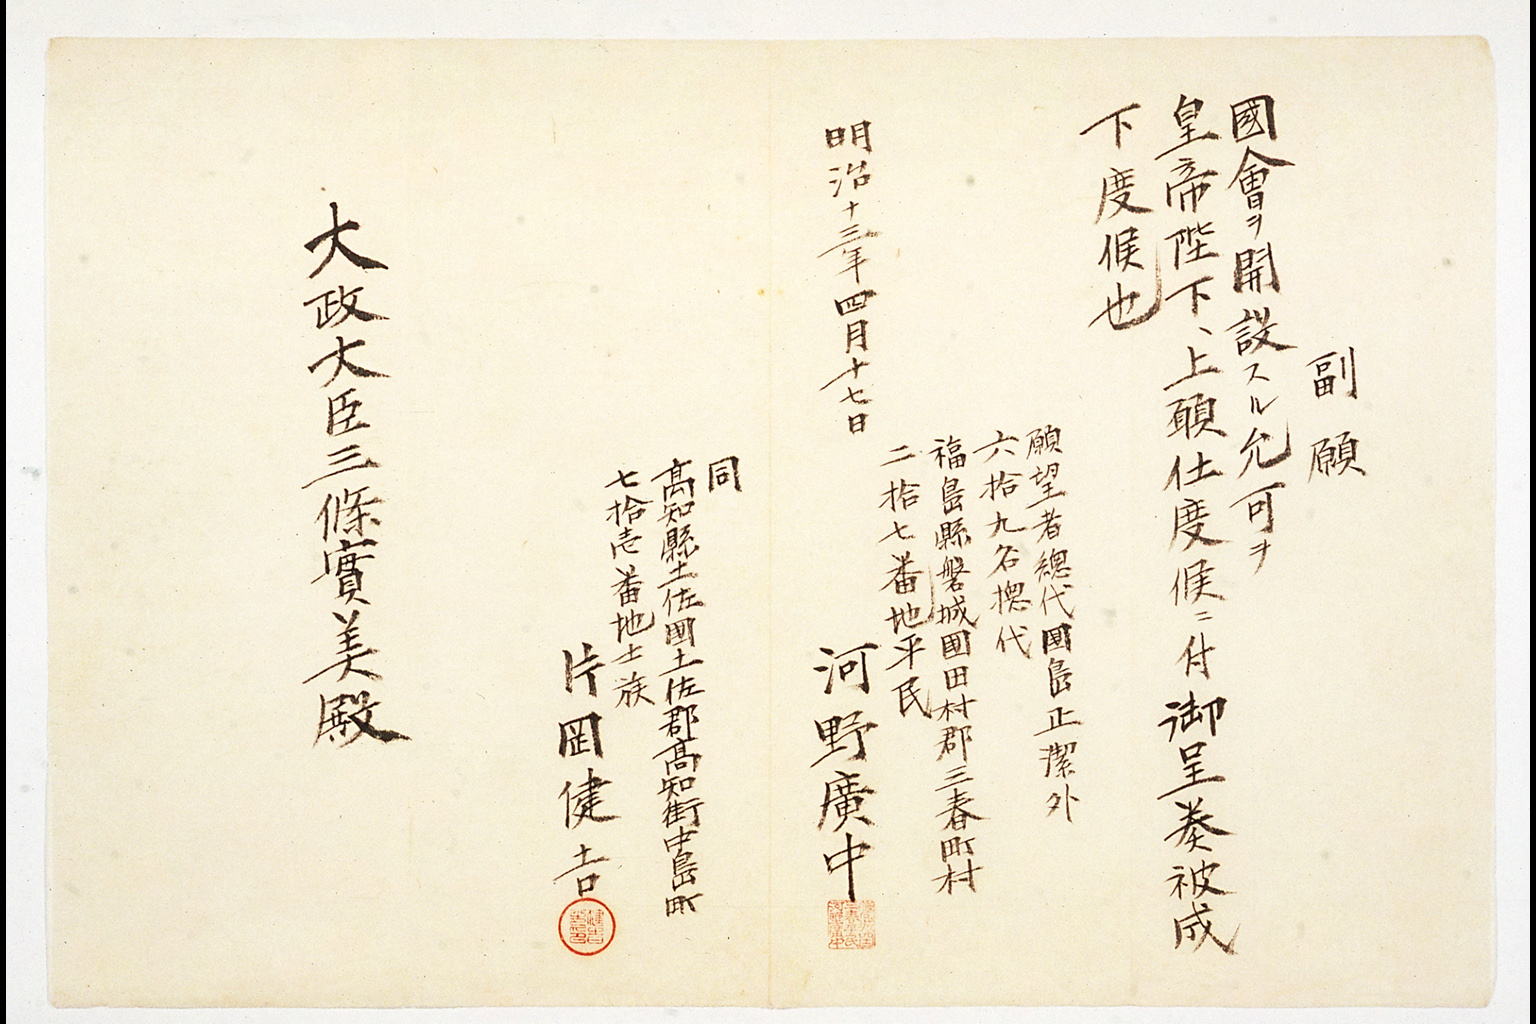 副願
國會ヲ開設スル允可ヲ
皇帝陛下ヘ上願仕度候ニ付御呈奏被成
下度候也
願望者總代國島正潔外
六拾九名揔代
福島縣磐城國田村郡三春町村
二拾七番地平民
河野廣中
明治十三年四月十七日
同
高知縣土佐國土佐郡高知街中島町
七拾壱番地士族
片岡健吉
大政大臣三條實美殿